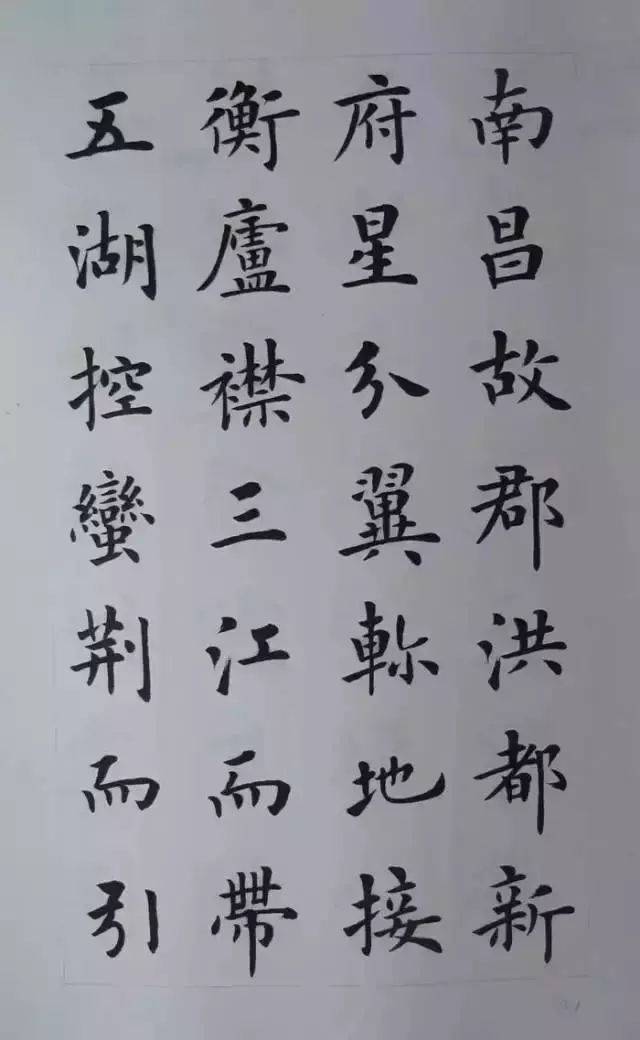 南昌故郡洪都新
府星分翼軫地接
衡廬襟三江而帶
五湖控蠻荆而引